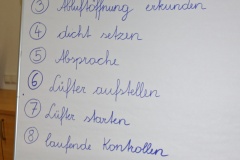 ③ Abluftöffnung erkunden
④ dicht setzen
⑤ Absprache
⑥ Lüfter aufstellen
⑦ Lüfter starten
⑧ laufende Kontrollen